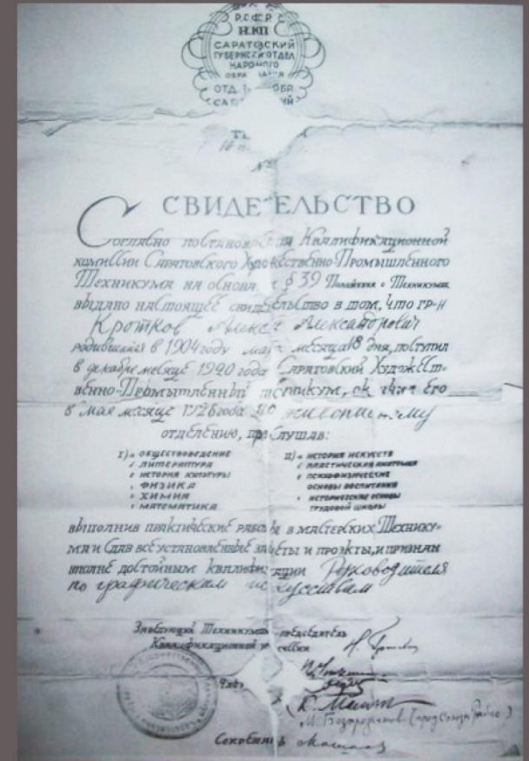 Р.С.Ф.С.Р.
НКП
САРАТОВСКИЙ
ГУБЕРНСК. ОТДЕЛ
НАРОДНОГО
ОТД.
№
СВИДЕТЕЛЬСТВО
Согласно постановления Квалификационной
комиссии Саратовского Художественно-Промышленного
Техникума на основан. § 39 Положения о Техникумах
выдано настоящее свидетельство в том, что гр-н
Кротков Алекс Александрович
родившийся в 1904 году мая месяца 18 дня, поступил
в декабре месяце 1920 года Саратовский Художест-
венно-Промышленный техникум, окончил его
в мае месяце 1926 года по живописному
отделению, прослушав:
I) ОБЩЕСТВОВЕДЕНИЕ
ЛИТЕРАТУРА
ИСТОРИЯ КУЛЬТУРЫ
ФИЗИКА
ХИМИЯ
МАТЕМАТИКА
II) ИСТОРИЯ ИСКУССТВ
ПЛАСТИЧЕСКАЯ АНАТОМИЯ
ПСИХОФИЗИЧЕСКИЕ
ОСНОВЫ ВОСПИТАНИЯ
ИСТОРИЧЕСКИЕ ОСНОВЫ
ТРУДОВОЙ ШКОЛЫ
выполнив практические работы в мастерских Технику-
ма и сдав все установленные зачеты и проэкты, и признан
вполне достойным квалификации Руководителя
по графическим искусствам
Заведующий Техникумом председатель
Квалификационной комиссии
Секретарь